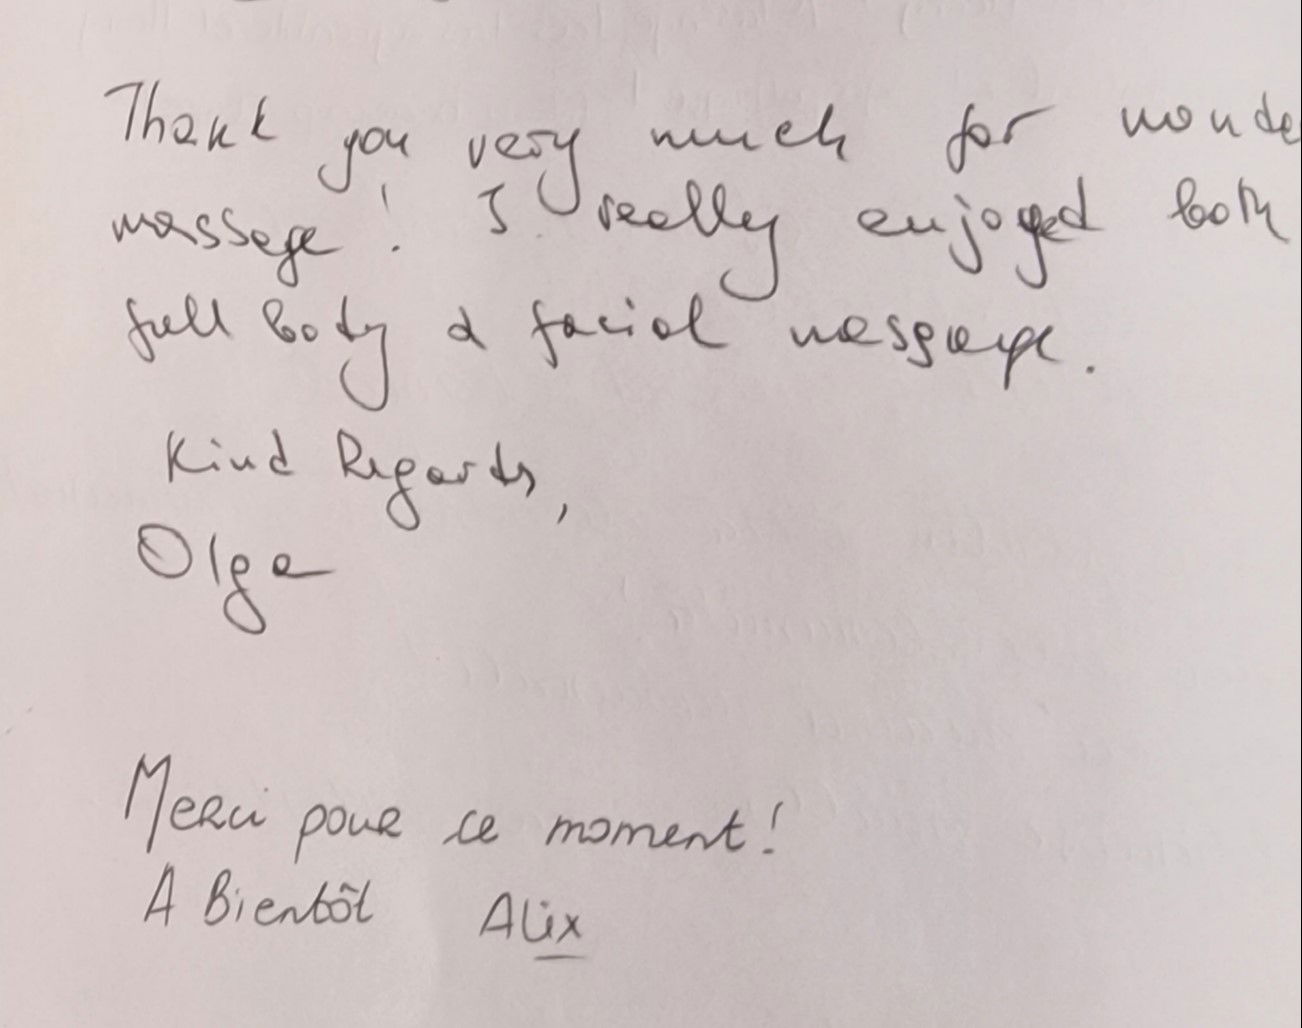 Thank you very much for wonde
massage! I really enjoyed both
full body & facial massage.
Kind Regards,
Olga
Merci pour ce moment!
A Bientôt Alix